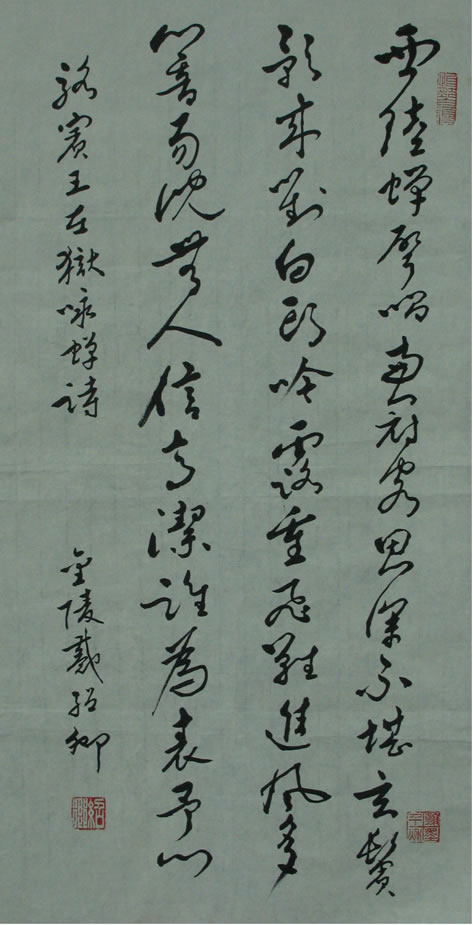 西陸蝉聲唱南冠客思深不堪玄鬢
影来對白頭吟露重飛難進風多
響易沈無人信高潔誰為表予心
駱賓王在獄咏蝉詩 金陵戴紹卿